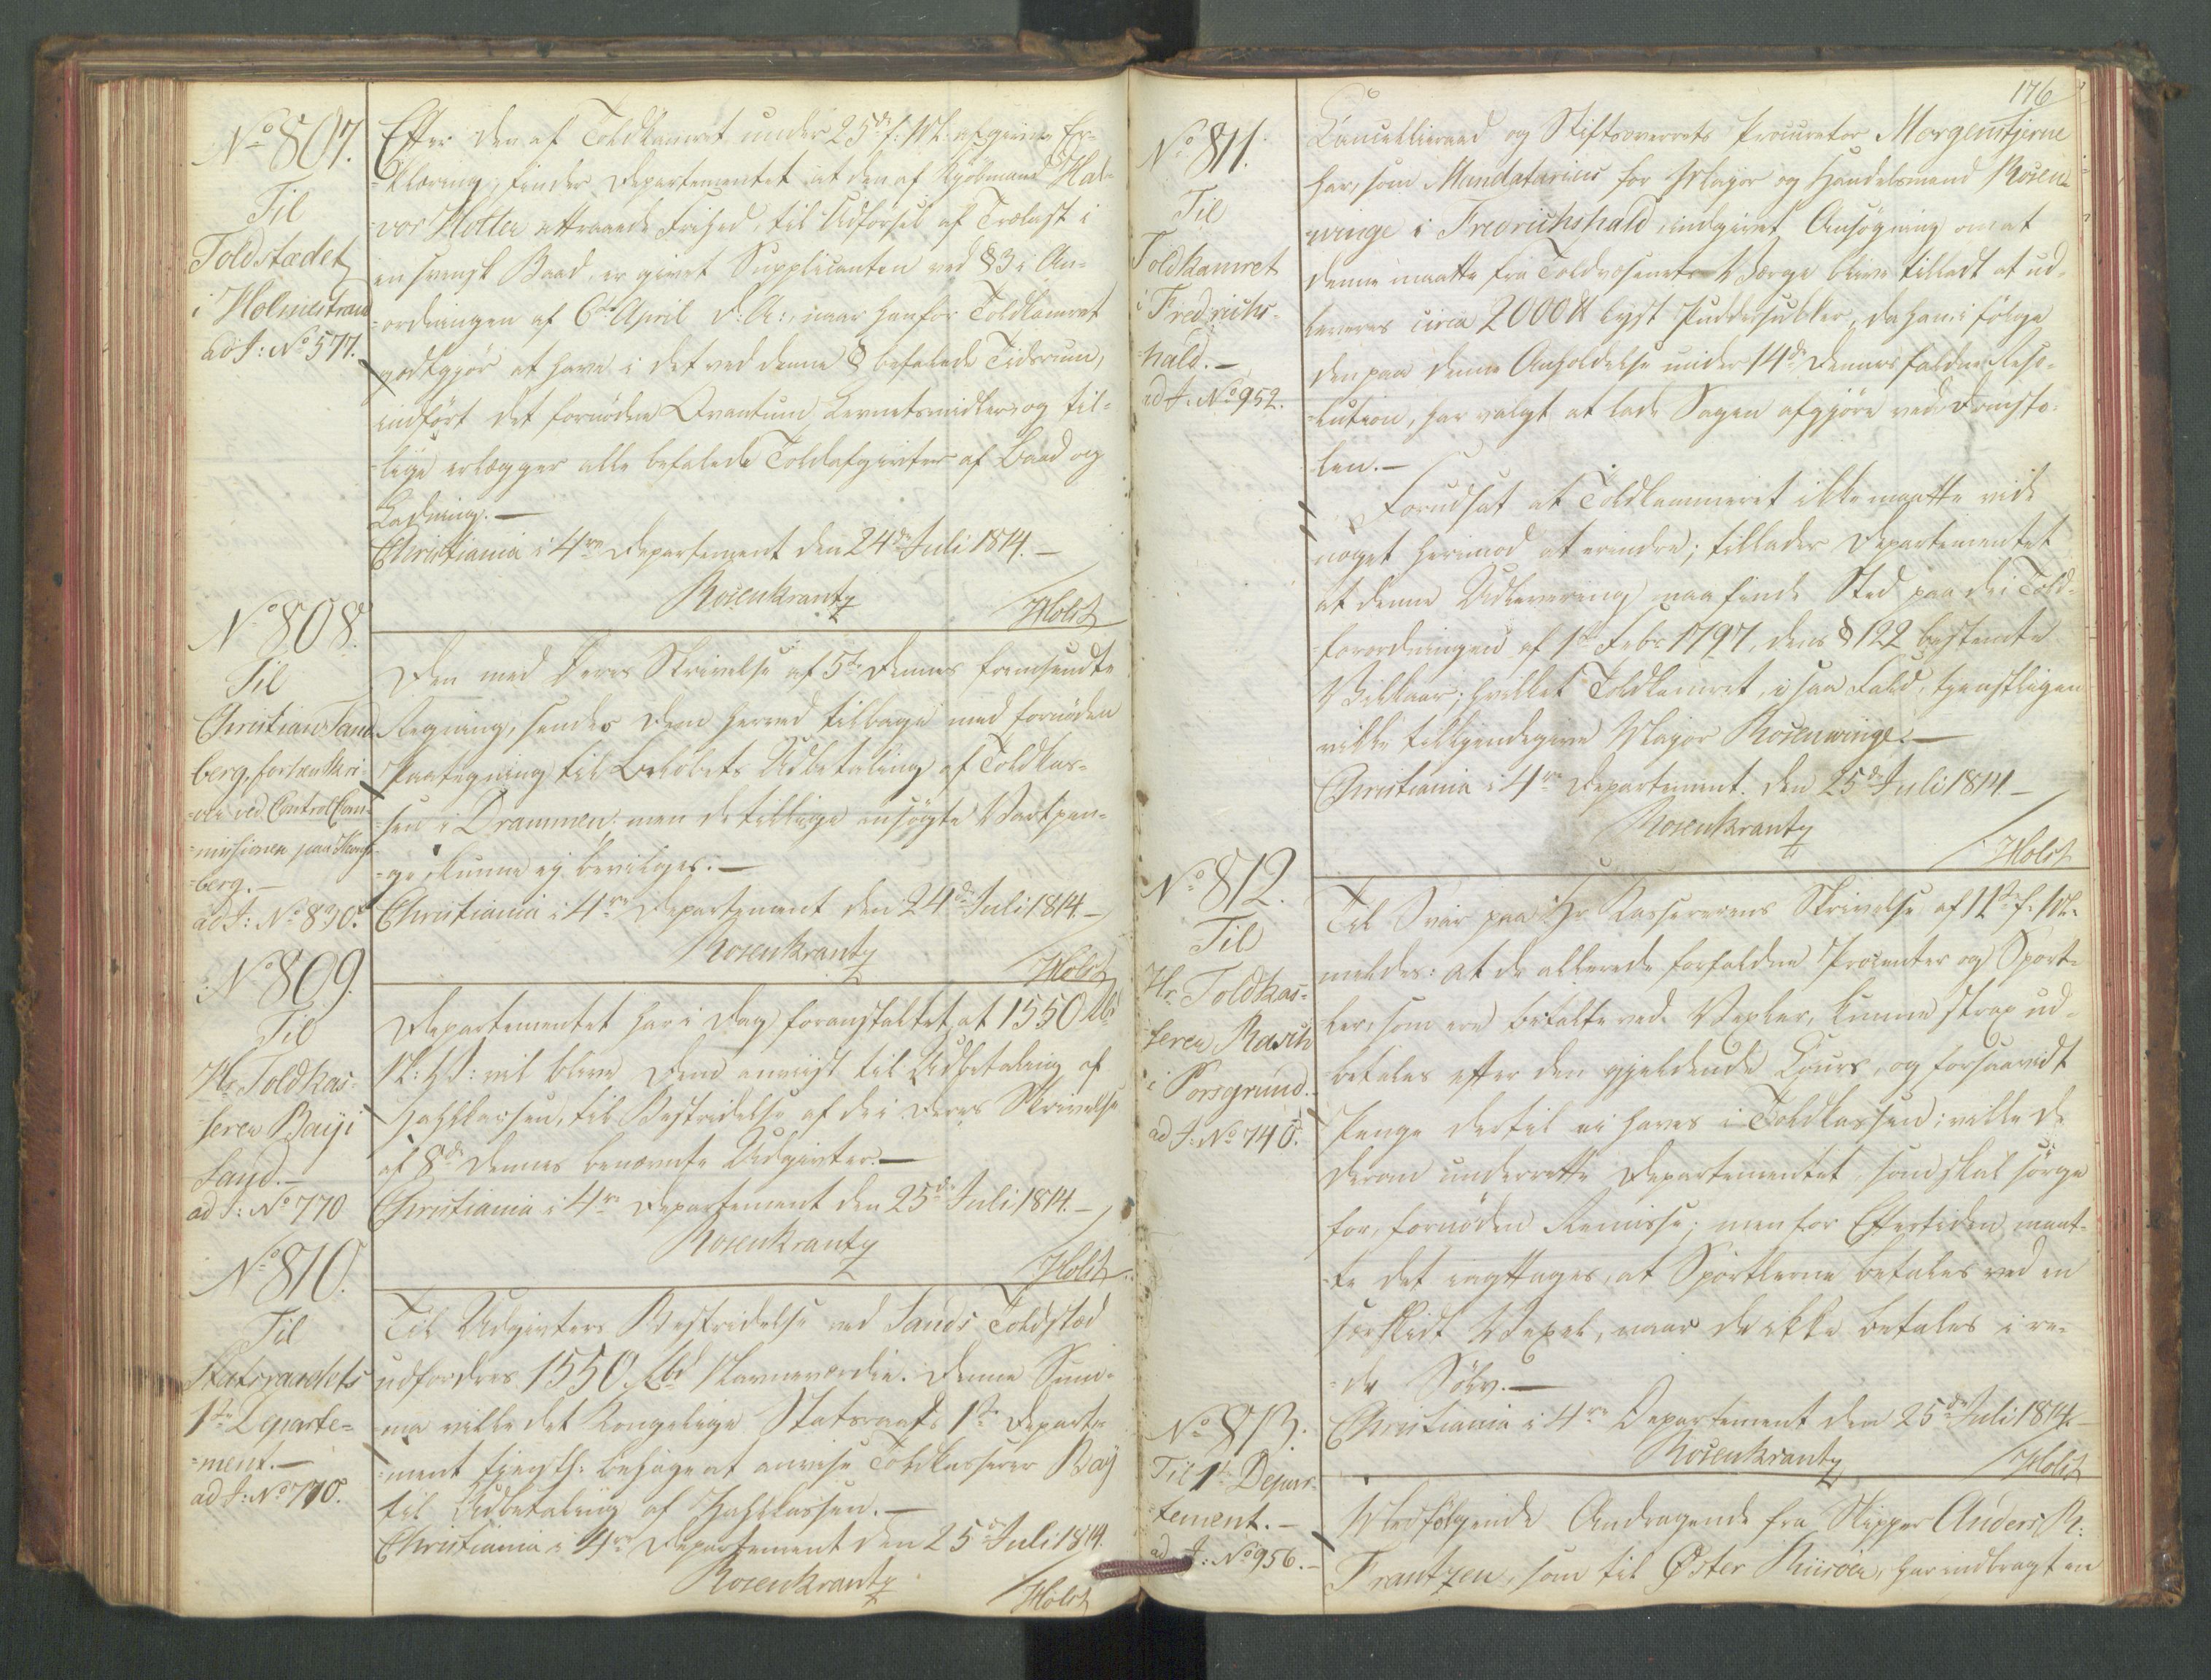 No 807.
Til
Toldstædet
i Holmestrand
ad J: No 577.
Efter den af Toldkamret under 25de f: M: afgivne Er-
-klæring, finder Departementet at den af Kjøbmand Hal-
-vor Holtee attraaede Frihed, til Udførsel af Trælast i
en svensk Baad, er givet Supplicanten ved § 3 i An-
-ordningen af 6te April d: A:, naar han for Toldkamret
godtgjør at have i det ved denne § befalede Tidsrum,
indført det fornødne Qvantum Levnetsmidler og til-
-lige erlægger alle befalede Toldafgivter af Baad og
Ladning. —
Christiania i 4re Departement den 24de Juli 1814. —
Rosenkrantz
/Holst
No 808.
Til
Christian Sand-
berg, forhen Skri-
-ver ved Control Com-
-missionen paa Kongs-
-berg. —
ad J: No 830.
Den med Deres Skrivelse af 5te dennes fremsendte
Regning, sendes Dem herved tilbage med fornøden
Paategning til Beløbets Udbetaling af Toldkas-
-sen i Drammen; men de tillige ansøgte Vartpen-
-ge kunne ej bevilges. —
Christiania i 4re Departement den 24de Juli 1814. —
Rosenkrantz
/Holst
No 809.
Til
Hr. Toldkas-
serer Bay i
Sand. —
ad J: No 770
Departementet har i Dag foranstaltet, at 1550 Rbd
N: V: vil blive Dem anviist til Udbetaling af
Zahlkassen, til Bestridelse af de i Deres Skrivelse
af 8de dennes benævnte Udgivter. —
Christiania i 4re Departement den 25de Juli 1814. —
Rosenkrantz
/Holst
No 810.
Til
Statsraadets
1ste Departe-
-ment. —
ad J: No 770.
Til Udgivters Bestridelse ved Sands Toldsted
udfordres 1550 Rbd Navneværdie. Denne Sum-
-ma ville det Kongelige Statsraads 1ste Departe-
-ment tjenstl: behage at anvise Toldkasserer Bay
til Udbetaling af Zahlkassen. —
Christiania i 4re Departement den 25de Juli 1814.
Rosenkrantz
/Holst
176
No 811.
Til
Toldkamret
i Fredrichs-
-hald. —
ad J. No 952.
Cancelliraad og Stiftsoverrets Procurator Morgenstjerne
har, som Mandatarius for Major og Handelsmand Rosen-
winge i Fredrichshald, indgivet Ansøgning om at
denne maatte fra Toldvæsenets Værge blive tilladt at ud-
leveres circa 2000 ℔ lyst Puddersukker, da han i Følge
den paa denne Anholdelse under 14de dennes faldne Reso-
-lution, har valgt at lade Sagen afgjøre ved Domsto-
len. —
Forudsat at Toldkammeret ikke maatte vide
noget herimod at erindre; tillader Departementet
at denne Udlevering maa finde Sted paa de i Told-
-forordningen af 1ste Febr 1797, dens § 122 bestemte
Vilkaar; hvilket Toldkamret, i saa Fald, tjenstligen
ville tilkjendegive Major Rosenwinge. —
Christiania i 4re Departement. den 25de Juli 1814 —
Rosenkrantz
/Holst
No 812.
Til
Hr. Toldkas-
serer Rasch
i Porsgrund. —
ad J: No 740.
Til Svar paa Hr. Kassererens Skrivelse af 11te f: M:
meldes: at de allerede forfaldne Procenter og Sport-
ler, som ere betalte ved Vexler, kunne strax ud-
betales efter den gjeldende Cours, og forsaavidt
Penge dertil ei haves i Toldkassen, ville De
derom underrette Departementet, som skal sørge
for, fornøden Remisse; men for Eftertiden maat-
-te det iagttages, at Sportlerne betales ved en
særskilt Vexel, naar de ikke betales i re-
-de Sølv. —
Christiania i 4re Departement den 25de Juli 1814. —
Rosenkrantz
/Holst
No 813.
Til 1ste Depar-
tement. —
ad J: No 956. —
Medfølgende Andragende fra Skipper Anders R:
Frantzen, som til Øster Riisøer, har indbragt en